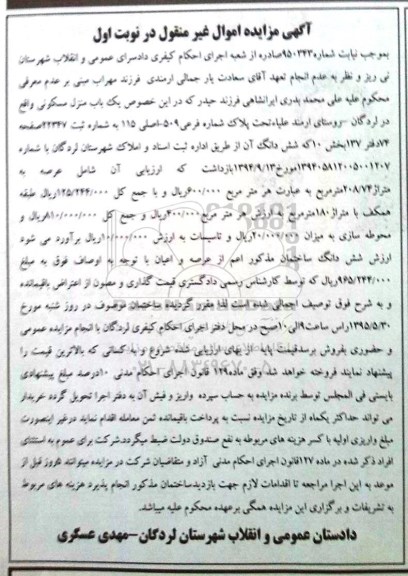 آگهی مزایده اموال غیر منقول در نوبت اول
بموجب نیابت شماره۹۵۰۳۴۳صادره از شعبه اجرای احکام کیفری دادسرای عمومی و انقلاب شهرستان
نی ریز و نظر به عدم انجام تعهد آقای سعادت یار جمالی ارمندی فرزند مهراب مبنی بر عدم معرفی
محکوم علیه علی محمد بدری ایرانشاهی فرزند حیدر که در این خصوص یک باب منزل مسکونی واقع
در لردگان –روستای ارمند علیاءتحت پلاک شماره فرعی۵۰۹-اصلی ۱۱۵ به شماره ثبت ۲۲۳۴۷صفحه
۷۴دفتر ۱۳۷بخش ۱۰که شش دانگ آن از طریق اداره ثبت اسناد و املاک شهرستان لردگان با شماره
۱۳۹۴۰۵۸۱۲۰۰۵۰۰۱۲۰۷مورخ۱۳۹۴/۹/۱۳بازداشت که ارزیابی آن شامل عرصه به
متراژ۲۰۸/۷۴مترمربع به عبارت هر متر مربع ۶۰۰/۰۰۰ریال و با جمع کل ۱۲۵/۲۴۴/۰۰۰ریال طبقه
همکف با متراژ۱۸۰مترمربع به ارزش هر متر مربع ریال و جمع کل ۸۱۰/۰۰۰/۰۰۰ریال و
محوطه سازی به میزان ۲۰/۰۰۰/۰۰۰ریال و تاسیسات به ارزش ۱۰/۰۰۰/۰۰۰ریال برآورد می شود
ارزش شش دانگ ساختمان مذکور اعم از عرصه و اعیان با توجه به اوصاف فوق به مبلغ
۹۶۵/۲۴۴/۰۰۰ریال که توسط کارشناس رسمی دادگستری قیمت گذاری و مصون از اعتراض باقیمانده
و به شرح فوق توصیف اجمالی شده است لذا مقرر گردیده ساختمان موصوف در روز شنبه مورخ
۱۳۹۵/۵/۳۰راس ساعت۹الی۱۰صبح در محل دفتر اجرای احکام کیفری لردگان با انجام مزایده عمومی
و حضوری بفروش برسدقیمت پایه از بهای ارزیابی شده شروع و به کسانی که بالاترین قیمت را
پیشنهاد نمایند فروخته خواهد شد وفق ماده۱۲۹ قانون اجرای احکام مدنی ۱۰درصد مبلغ پیشنهادی
بایستی فی المجلس توسط برنده مزایده به حساب سپرده واریز و فیش آن به دفتر اجرا تحویل گردد خریدار
می تواند حداکثر یکماه از تاریخ مزایده نسبت به پرداخت باقیمانده ثمن معامله اقدام نماید درغیر اینصورت
مبلغ واریزی اولیه با کسر هزینه های مربوطه به نفع صندوق دولت ضبط میگردد.شرکت برای عموم به استثنای
افراد ذکر شده در ماده ۱۲۷قانون اجرای احکام مدنی آزاد و متقاضیان شرکت در مزایده میتوانند ۵روز قبل از
موعد به این اجرا مراجعه تا اقدامات لازم جهت بازدیدساختمان مذکور انجام پذیرد هزینه های مربوط
به تشریفات و برگزاری این مزایده همگی برعهده محکوم علیه میباشد.
دادستان عمومی و انقلاب شهرستان لردگان–مهدی عسگری